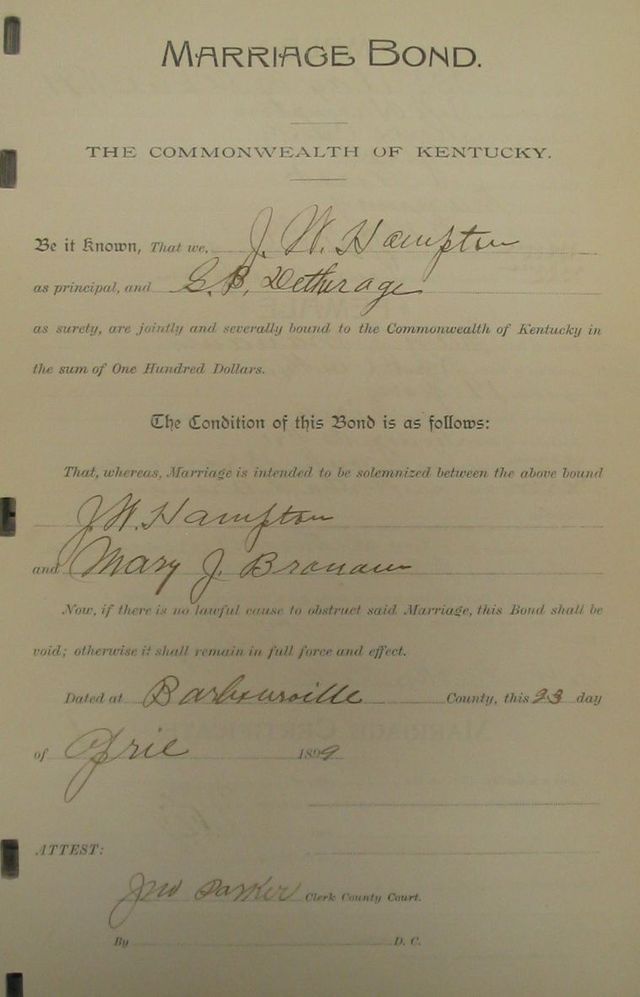 MARRIAGE BOND.
THE COMMONWEALTH OF KENTUCKY.
Be it Known, That we, J. W. Hampton
as principal, and G. B. Detherage
as surety, are jointly and severally bound to the Commonwealth of Kentucky in
the sum of One Hundred Dollars.
The Condition of this Bond is as follows:
That, whereas, Marriage is intended to be solemnized between the above bound
J. W. Hampton
and Mary J.
Now, if there is no lawful cause to obstruct said Marriage, this Bond shall be
void; otherwise it shall remain in full force and effect.
Dated at Barbourville County, this 23 day
of April 1899
ATTEST:
Jno Parker Clerk County Court.
By D. C.